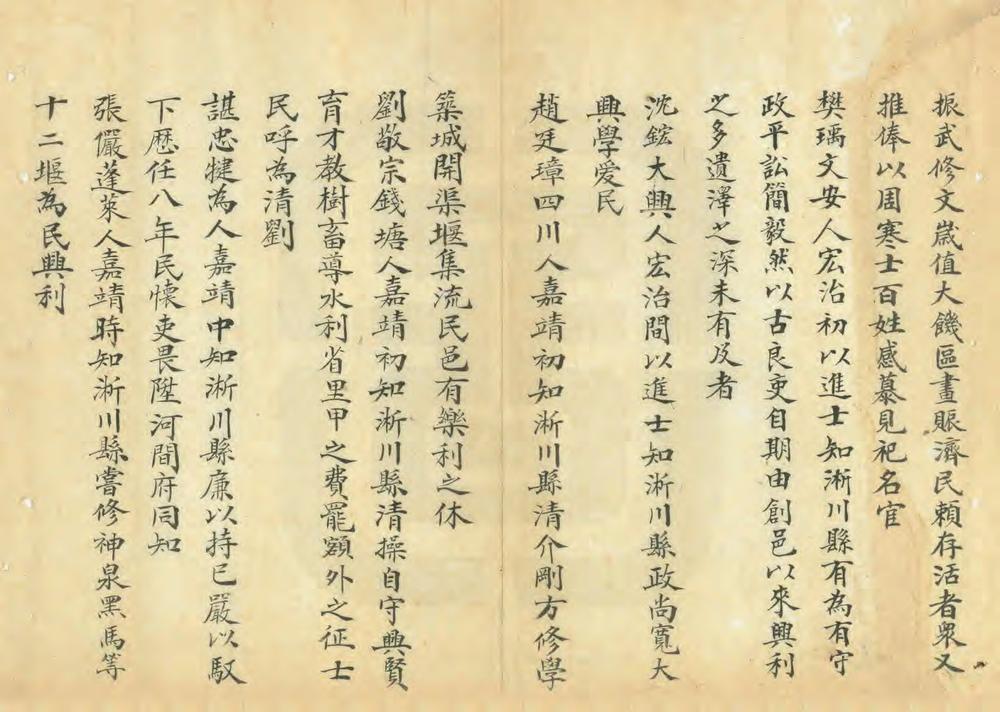 振武修文嵗值大饑區畫賑濟民賴存活者衆又
推俸以周寒士百姓感慕見祀名宦
樊瑀文安人宏治初以進士知淅川縣有為有守
政平訟簡毅然以古良吏自期由創邑以來興利
之多遺澤之深未有及者
沈鋐大興人宏治間以進士知淅川縣政尚寬大
興學爱民
趙廷璋四川人嘉靖初知淅川縣清介剛方修學
築城開渠堰集流民邑有樂利之休
劉敬宗錢塘人嘉靖初知淅川縣清操自守興賢
育才教樹畜導水利省里甲之費罷額外之征士
民呼為清劉
諶忠犍為人嘉靖中知淅川縣廉以持已嚴以馭
下歷任八年民懷吏畏陞河間府同知
張儼蓬萊人嘉靖時知淅川縣嘗修神泉黑馬等
十二堰為民興利